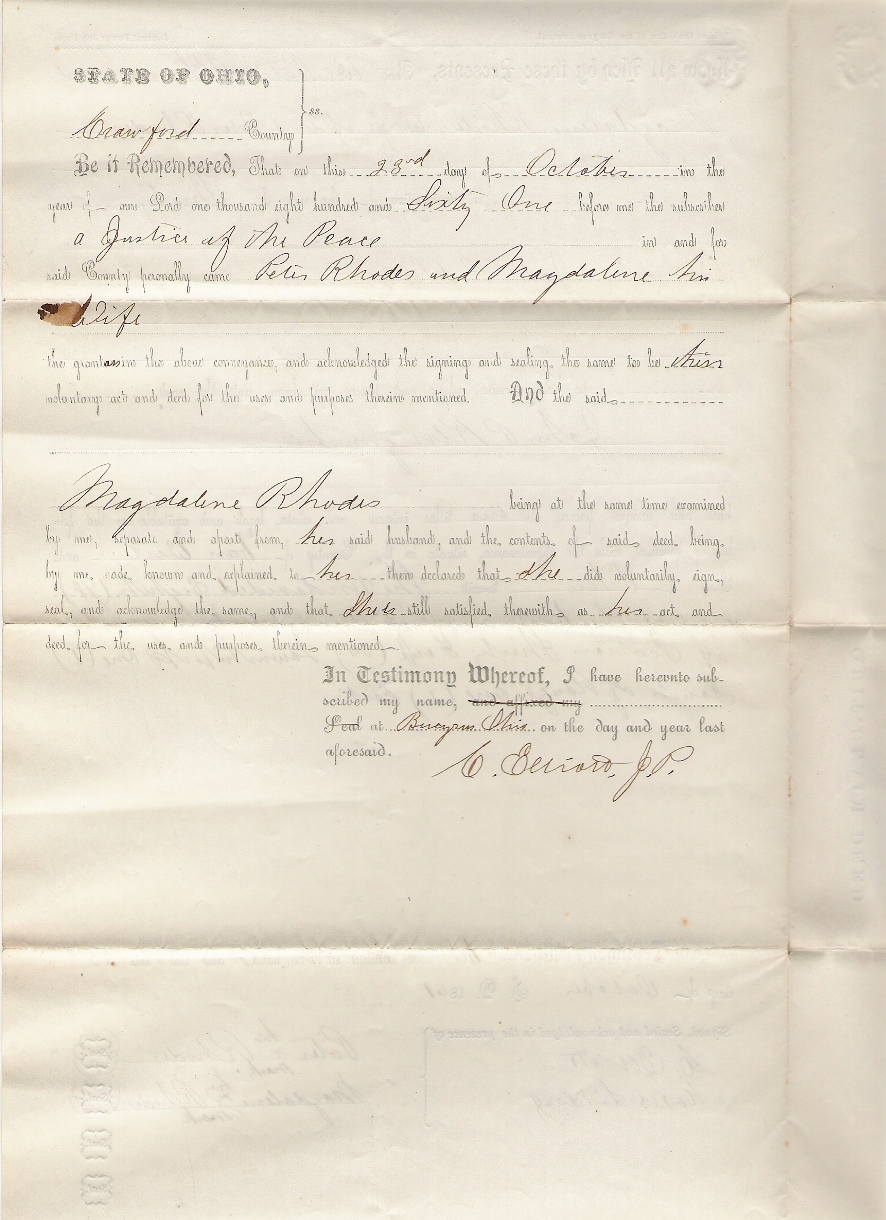 STATE OF OHIO,
Crawford County } ss.
Be it Remembered, That on this 23rd day of October in the
year of our Lord one thousand eight hundred and Sixty One before me the subscriber
a Justice of the Peace in and for
said County personally came Peter Rhodes and Magdalene his
Wife
the grantors in the above conveyance, and acknowledged the signing and sealing the same to be their
voluntary act and deed for the uses and purposes therein mentioned. And the said
Magdalene Rhodes being at the same time examined
by me, separate and apart from her said husband, and the contents of said deed being
by me made known and explained to her then declared that she did voluntarily sign,
seal, and acknowledge the same, and that She is still satisfied therewith as her act and
deed for the uses and purposes therein mentioned
In Testimony Whereof, I have hereunto sub-
scribed my name, and affixed my
Seal at Bucyrus Ohio on the day and year last
aforesaid.
C. Elliott, J.P.